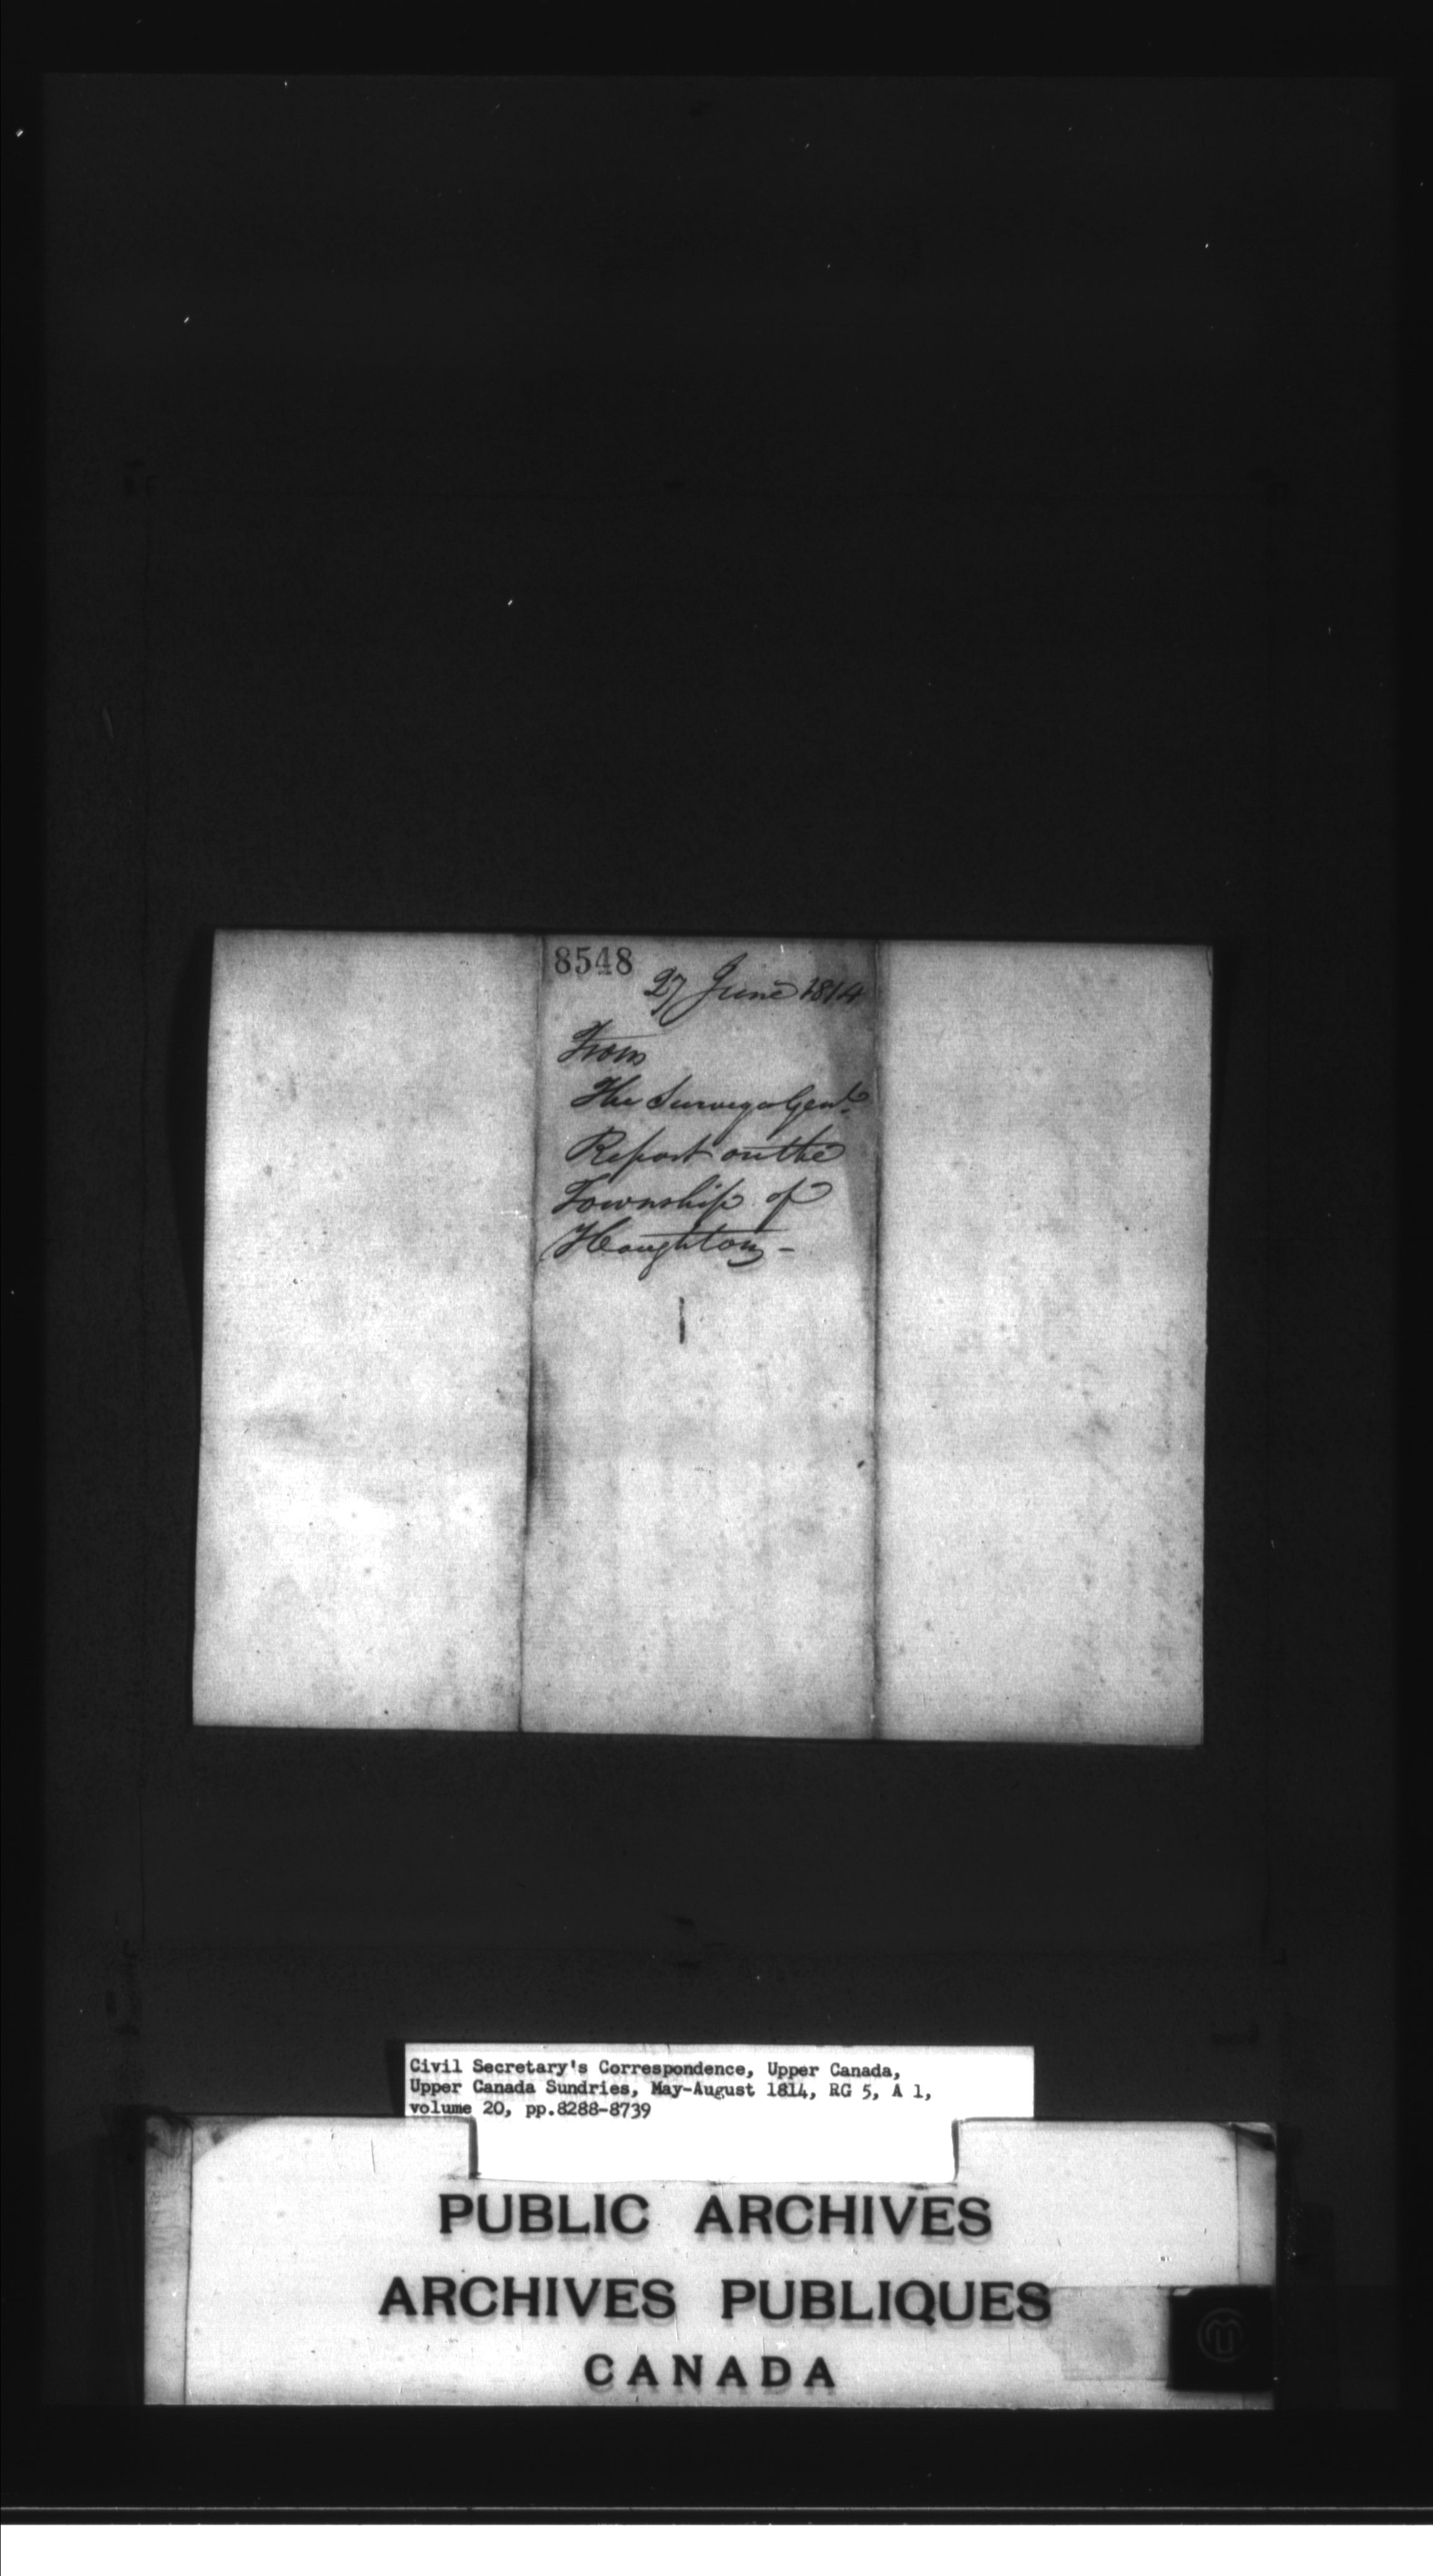 8548
27 June 1814
From
The Surveyo Genl.
Report on the
Township of
Houghton -
Civil Secretary's Correspondence, Upper Canada,
Upper Canada Sundries, May-August 1814, RG 5, A 1,
volume 20, pp.8288-8739
PUBLIC ARCHIVES
ARCHIVES PUBLIQUES
CANADA